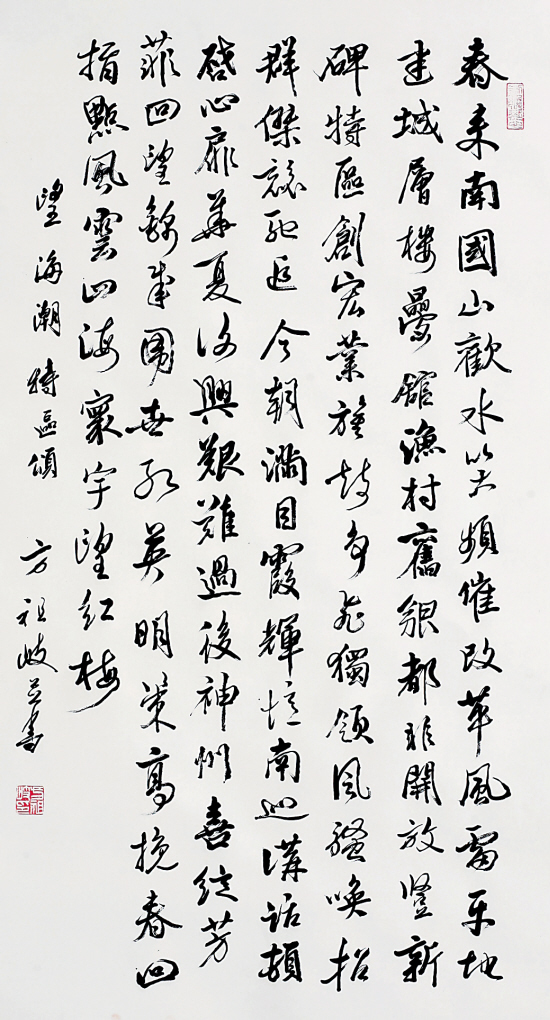 春来南國山歡水笑頻催改革風雷平地
建城層樓疊館漁村舊貌都非開放豎新
碑特區創宏業旌鼓争飛獨領風騷喚招
群傑競馳追今朝滿目霞輝憶南巡講話頓
啓心扉華夏復興艱難過後神州喜綻芳
菲回望錦成圍世紀英明策高挽春回
指點風雲四海寰宇望紅梅
望海潮特區頌 方祖岐並書